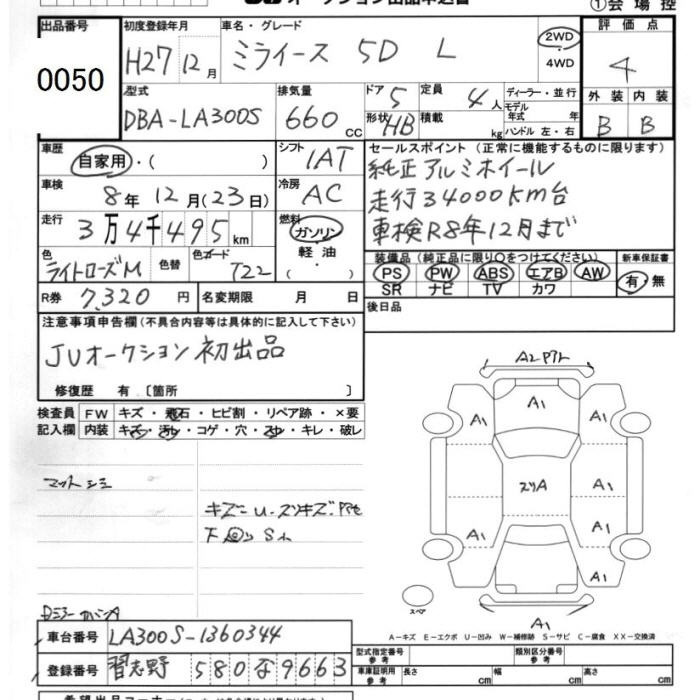 ①会場控
出品番号
0050
初度登録年月
H27 12月
車名・グレード
ミライース 5D L
2WD
・
4WD
評価点
4
型式
DBA-LA300S
排気量
660 cc
ドア
5
定員
4 人
形状
HB
積載
kg
ディーラー・並行
モデル
年式 年
ハンドル 左・右
外装 内装
B B
車歴
自家用・( )
シフト
IAT
セールスポイント (正常に機能するものに限ります)
純正アルミホイール
走行34000km台
車検R8年12月まで
車検
8年 12月(23日)
冷房
AC
走行
3万4千495km
燃料
ガソリン
・
軽油
( )
色
ライトローズM
色替
色コード
T22
装備品(純正品に限り○をつけてください)
PS PW ABS エアB AW
SR ナビ TV カワ
新車保証書
有・無
R券 7,320円
名変期限 月 日
後日品
注意事項申告欄(不具合内容等は具体的に記入して下さい)
JUオークション初出品
修復歴 有〔箇所 〕
検査員
記入欄
FW キズ・飛石・ヒビ割・リペア跡・×要
内装 キズ・汚れ・コゲ・穴・スレ・キレ・破レ
マットシミ
下回りSム
A2 P九
A1
A1
A1
A1
スリA
A1
A1
A1
A1
A1
スペア
A-キズ E-エクボ U-凹み W-補修跡 S-サビ C-腐食 XX-交換済
車台番号
LA300S-1360344
登録番号
習志野 580 な 9663
型式指定番号
参考
類別区分番号
参考
車庫証明用
参考
長さ cm
幅 cm
高さ cm